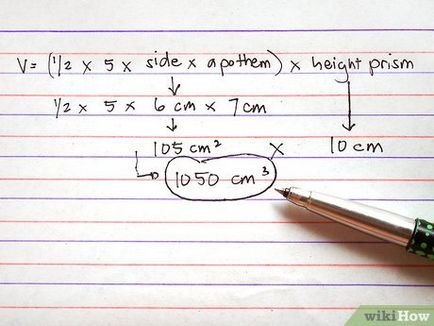 V = (1/2 x 5 x side x apothem) x height prism
1/2 x 5 x 6 cm x 7 cm
105 cm² x 10 cm
1050 cm³
wikiHow